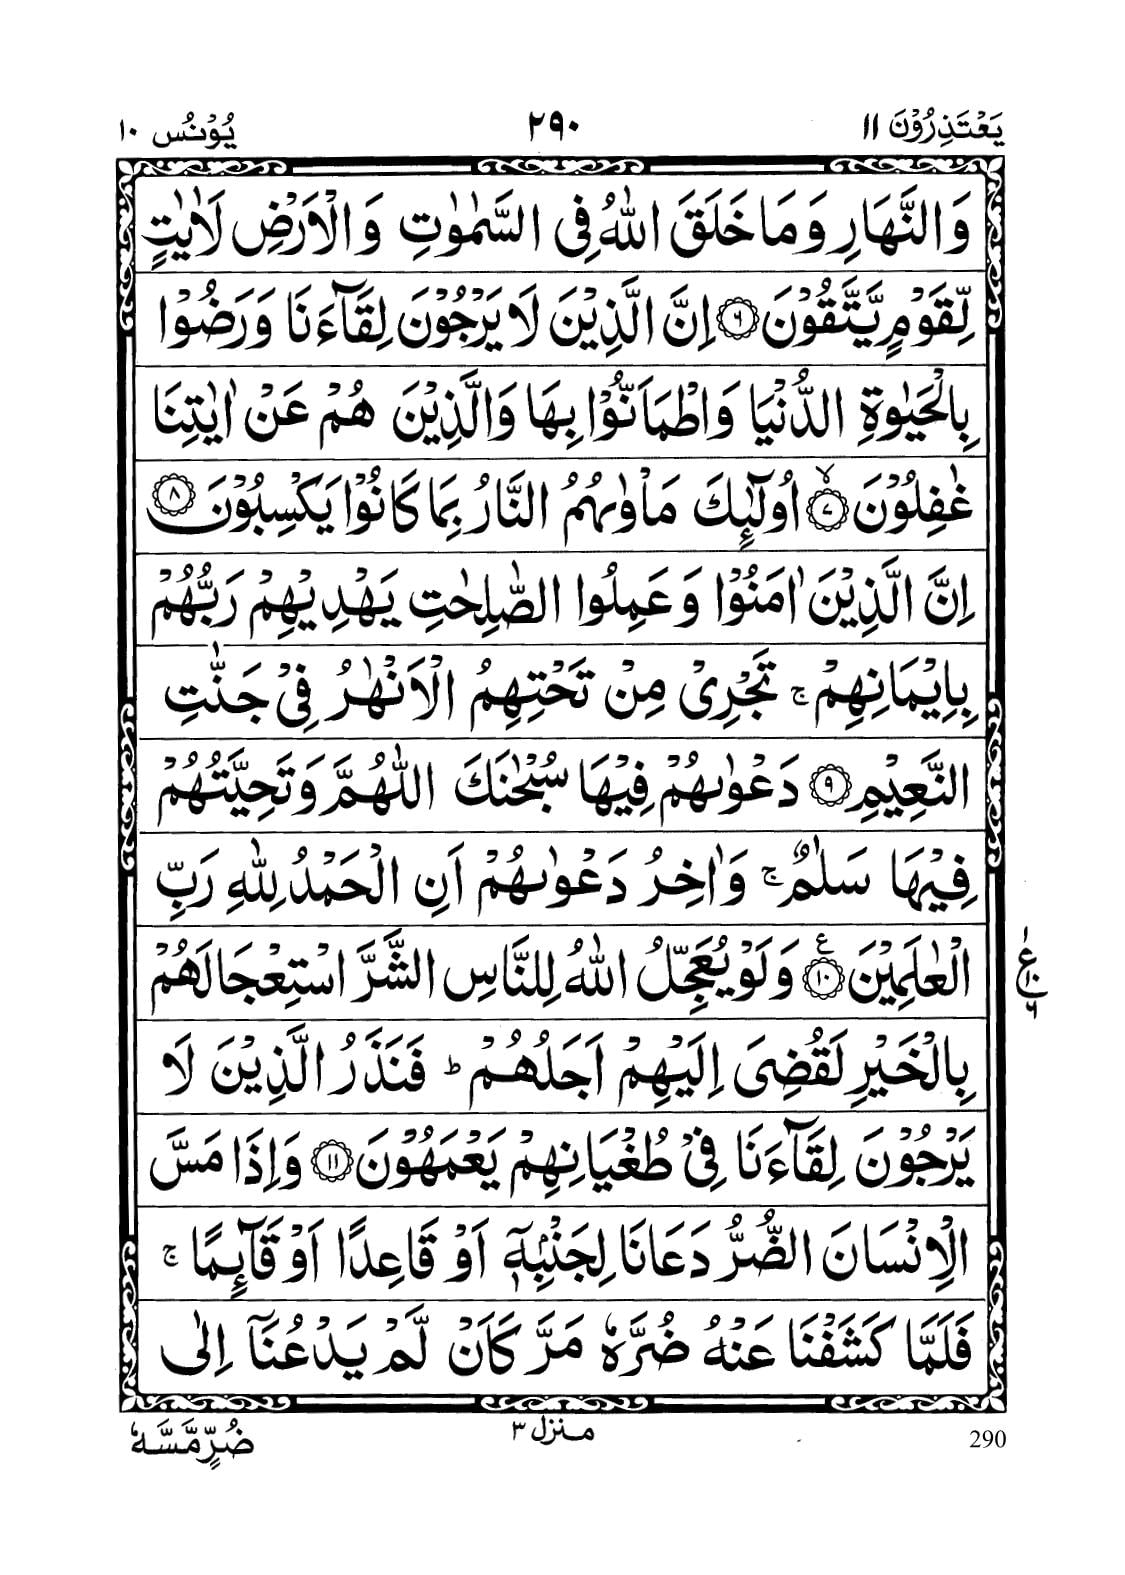 يَعْتَذِرُوْنَ ١١ ٢٩٠ يُوْنُس ١٠
وَالنَّهَارِ وَمَا خَلَقَ اللّٰهُ فِى السَّمٰوٰتِ وَالْاَرْضِ لَاٰيٰتٍ
لِّقَوْمٍ يَّتَّقُوْنَ ﴿٦﴾ اِنَّ الَّذِيْنَ لَا يَرْجُوْنَ لِقَآءَنَا وَرَضُوْا
بِالْحَيٰوةِ الدُّنْيَا وَاطْمَاَنُّوْا بِهَا وَالَّذِيْنَ هُمْ عَنْ اٰيٰتِنَا
غٰفِلُوْنَ ﴿٧﴾ۙ اُولٰٓئِكَ مَاْوٰىهُمُ النَّارُ بِمَا كَانُوْا يَكْسِبُوْنَ ﴿٨﴾
اِنَّ الَّذِيْنَ اٰمَنُوْا وَعَمِلُوا الصّٰلِحٰتِ يَهْدِيْهِمْ رَبُّهُمْ
بِاِيْمَانِهِمْ ۚ تَجْرِىْ مِنْ تَحْتِهِمُ الْاَنْهٰرُ فِىْ جَنّٰتِ
النَّعِيْمِ ﴿٩﴾ دَعْوٰىهُمْ فِيْهَا سُبْحٰنَكَ اللّٰهُمَّ وَتَحِيَّتُهُمْ
فِيْهَا سَلٰمٌ ۚ وَاٰخِرُ دَعْوٰىهُمْ اَنِ الْحَمْدُ لِلّٰهِ رَبِّ
الْعٰلَمِيْنَ ﴿١٠﴾ ع وَلَوْ يُعَجِّلُ اللّٰهُ لِلنَّاسِ الشَّرَّ اسْتِعْجَالَهُمْ
١ ع ١٠ ٦
بِالْخَيْرِ لَقُضِىَ اِلَيْهِمْ اَجَلُهُمْ ؕ فَنَذَرُ الَّذِيْنَ لَا
يَرْجُوْنَ لِقَآءَنَا فِىْ طُغْيَانِهِمْ يَعْمَهُوْنَ ﴿١١﴾ وَاِذَا مَسَّ
الْاِنْسَانَ الضُّرُّ دَعَانَا لِجَنْۢبِهٖۤ اَوْ قَاعِدًا اَوْ قَآئِمًا ۚ
فَلَمَّا كَشَفْنَا عَنْهُ ضُرَّهٗ مَرَّ كَاَنْ لَّمْ يَدْعُنَاۤ اِلٰى
290 منزل ٣ ضُرٍّ مَّسَّهٗ